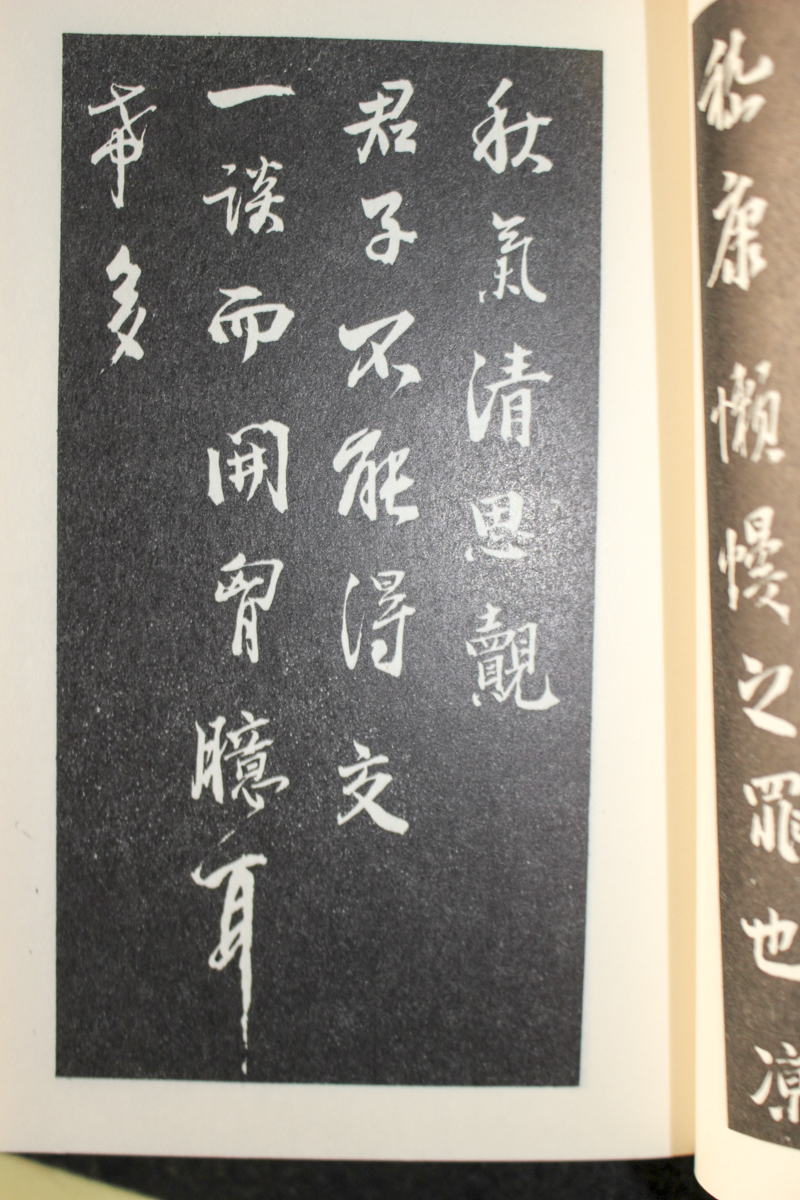 嵇康懶慢之罪也凉
秋氣清思覿
君子不能得交
一談而開胷臆耳
希多